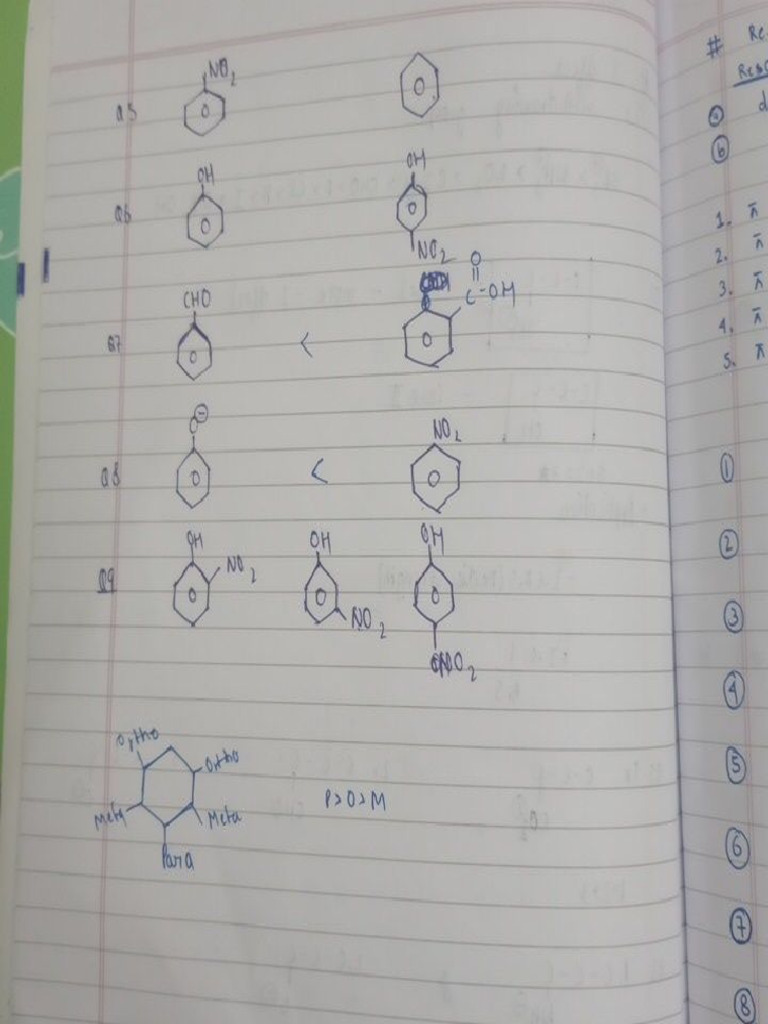 # Re
Q5 NO2
Q6 OH OH
NO2
Q7 CHO < O
C-OH
Q8 O⊖ < NO2
Q9 OH NO2 OH NO2 OH
NO2
Ortho Ortho
Meta Meta P>O>M
Para
a d
b
1. π
2. π
3. π
4. π
5. π
1
2
3
4
5
6
7
8